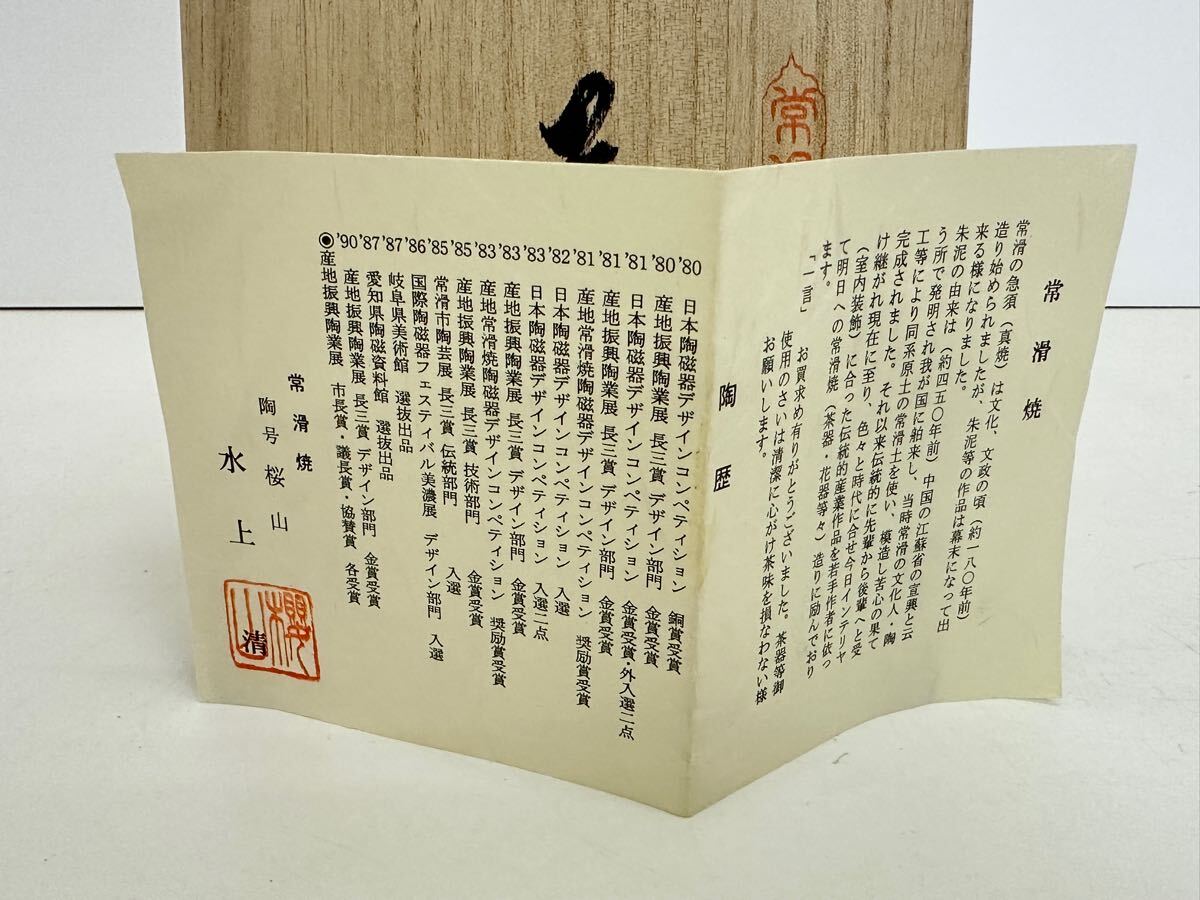 常滑
常滑焼
常滑の急須（真焼）は文化、文政の頃（約一八〇年前）
造り始められましたが、朱泥等の作品は幕末になって出
来る様になりました。
朱泥の由来は（約四五〇年前）中国の江蘇省の宜興と云
う所で発明され我が国に舶来し、当時常滑の文化人・陶
工等により同系原土の常滑土を使い、模造し苦心の果て
完成されました。それ以来伝統的に先輩から後輩へと受
け継がれ現在に至り、色々と時代に合せ今日インテリヤ
（室内装飾）に合った伝統的産業作品を若手作者に依っ
て明日への常滑焼（茶器・花器等々）造りに励んでおり
ます。
「一言」 お買求め有りがとうございました。茶器等御
使用のさいは清潔に心がけ茶味を損なわない様
お願いします。
陶歴
'80 日本陶磁器デザインコンペティション 銅賞受賞
'80 産地振興陶業展 長三賞 デザイン部門 金賞受賞
'81 日本陶磁器デザインコンペティション 金賞受賞・外入選二点
'81 産地振興陶業展 長三賞 デザイン部門 金賞受賞
'81 産地常滑焼陶磁器デザインコンペティション 奨励賞受賞
'82 日本陶磁器デザインコンペティション 入選
'83 日本陶磁器デザインコンペティション 入選二点
'83 産地振興陶業展 長三賞 デザイン部門 金賞受賞
'83 産地常滑焼陶磁器デザインコンペティション 奨励賞受賞
'85 産地振興陶業展 長三賞 技術部門 金賞受賞
'85 常滑市陶芸展 長三賞 伝統部門 入選
'86 国際陶磁器フェスティバル美濃展 デザイン部門 入選
'87 岐阜県美術館 選抜出品
'87 愛知県陶磁資料館 選抜出品
'90 産地振興陶業展 長三賞 デザイン部門 金賞受賞
◉産地振興陶業展 市長賞・議長賞・協賛賞 各受賞
常滑焼
陶号 桜山
水上清
櫻山